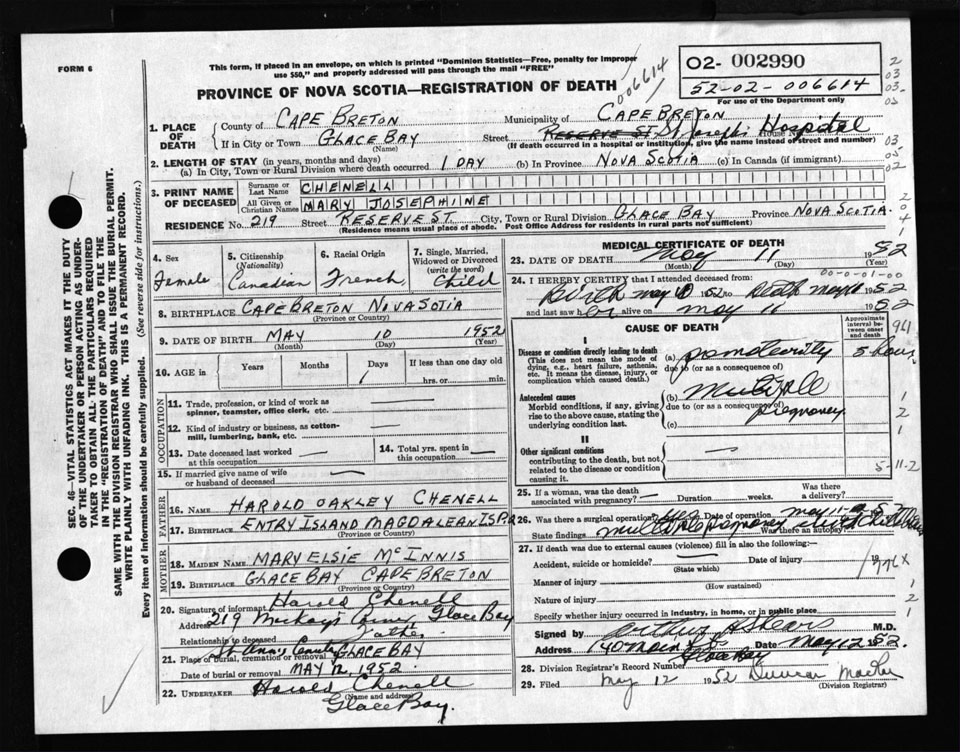 FORM 6
This form, if placed in an envelope, on which is printed "Dominion Statistics—Free, penalty for improper
use $50," and properly addressed will pass through the mail "FREE"
006614
O2- 002990
52-02-006614
For use of the Department only
PROVINCE OF NOVA SCOTIA—REGISTRATION OF DEATH
SEC. 46—VITAL STATISTICS ACT MAKES IT THE DUTY
OF THE UNDERTAKER OR PERSON ACTING AS UNDER-
TAKER TO OBTAIN ALL THE PARTICULARS REQUIRED
IN THE "REGISTRATION OF DEATH" AND TO FILE THE
SAME WITH THE DIVISION REGISTRAR WHO SHALL ISSUE THE BURIAL PERMIT.
WRITE PLAINLY WITH UNFADING INK. THIS IS A PERMANENT RECORD.
Every item of information should be carefully supplied. (See reverse side for instructions.)
1. PLACE OF DEATH
County of CAPE BRETON Municipality of CAPE BRETON
If in City or Town GLACE BAY Street RESERVE ST St Josephs Hospital House No.
(Name) (If death occurred in a hospital or institution, give the name instead of street and number)
2. LENGTH OF STAY (in years, months and days)
(a) In City, Town or Rural Division where death occurred 1 DAY (b) In Province NOVA SCOTIA (c) In Canada (if immigrant)
3. PRINT NAME OF DECEASED
Surname or Last Name CHENELL
All Given or Christian Names MARY JOSEPHINE
RESIDENCE No. 219 Street RESERVE ST City, Town or Rural Division GLACE BAY Province NOVA SCOTIA.
(Residence means usual place of abode. Post Office Address for residents in rural parts not sufficient)
4. Sex Female
5. Citizenship (Nationality) Canadian
6. Racial Origin French
7. Single, Married, Widowed or Divorced (write the word) Child
8. BIRTHPLACE CAPE BRETON NOVA SOTIA
(Province or Country)
9. DATE OF BIRTH MAY 10 1952
(Month) (Day) (Year)
10. AGE in Years Months Days 1 If less than one day old hrs. or min.
OCCUPATION
11. Trade, profession, or kind of work as
spinner, teamster, office clerk, etc. —
12. Kind of industry or business, as cotton-
mill, lumbering, bank, etc. —
13. Date deceased last worked
at this occupation —
14. Total yrs. spent in
this occupation —
15. If married give name of wife
or husband of deceased —
FATHER
16. NAME HAROLD OAKLEY CHENELL
17. BIRTHPLACE ENTRY ISLAND MAGDALEAN IS P.Q
(Province or Country)
MOTHER
18. MAIDEN NAME MARY ELSIE McINNIS
19. BIRTHPLACE GLACE BAY CAPE BRETON
(Province or Country)
20. Signature of informant Harold Chenell
Address 219 Glace Bay
Relationship to deceased Father
21. St Anns GLACE BAY
Place of burial, cremation or removal
Date of burial or removal MAY 12, 1952.
22. UNDERTAKER Harold Chenell
(Name and address)
Glace Bay.
MEDICAL CERTIFICATE OF DEATH
23. DATE OF DEATH May 11 1952
(Month) (Day) (Year)
00-0-01-00
24. I HEREBY CERTIFY that I attended deceased from:
Birth may 10 1952 to Death may 11 1952
and last saw h er alive on may 11 1952
CAUSE OF DEATH
Approximate interval between onset and death
I
Disease or condition directly leading to death
(This does not mean the mode of
dying, e.g., heart failure, asthenia,
etc. It means the disease, injury, or
complication which caused death.)
(a) 5 hours
due to (or as a consequence of)
Antecedent causes
Morbid conditions, if any, giving
rise to the above cause, stating the
underlying condition last.
(b) Multiple
due to (or as a consequence of) pregnancy.
(c)
II
Other significant conditions
contributing to the death, but not
related to the disease or condition
causing it.
—
5-11-2
25. If a woman, was the death
associated with pregnancy? — Duration weeks. Was there
a delivery?
26. Was there a surgical operation? Date of operation may 11
State findings multiple pregnancy Was there an autopsy?
27. If death was due to external causes (violence) fill in also the following:—
Accident, suicide or homicide? Date of injury 19
(State which)
776X
Manner of injury
(How sustained)
Nature of injury
Specify whether injury occurred in industry, in home, or in public place
Signed by Arthur M.D.
Address Date May 12 1952
Glace Bay
28. Division Registrar's Record Number
29. Filed May 12 1952
(Division Registrar)